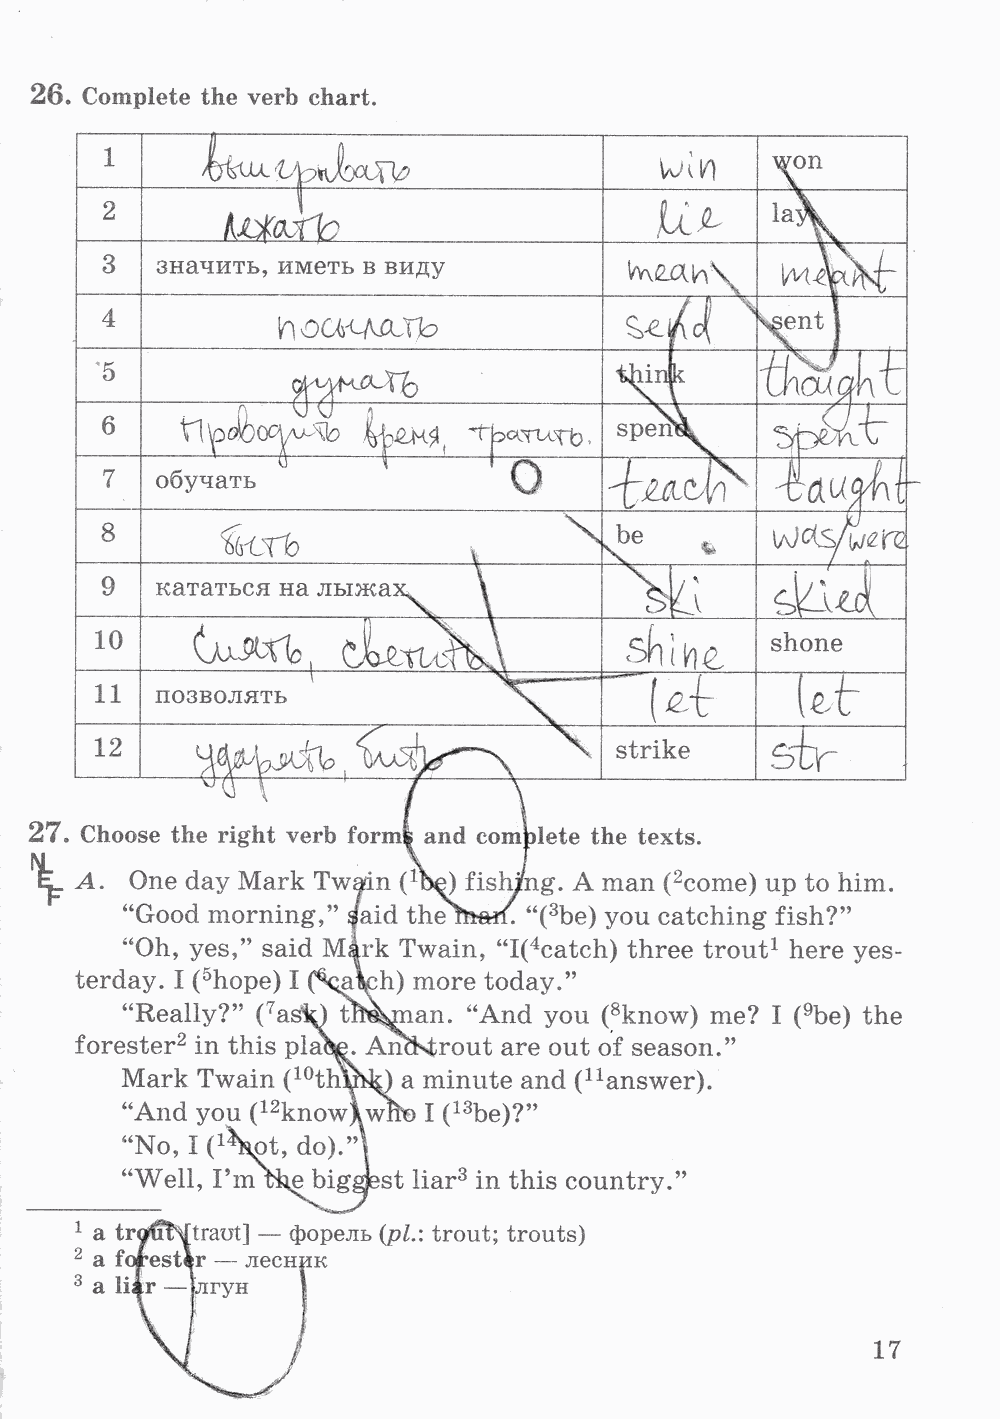 26. Complete the verb chart.
1 выигрывать win won
2 лежать lie lay
3 значить, иметь в виду mean meant
4 посылать send sent
5 думать think thought
6 Проводить время, тратить. spend spent
7 обучать teach taught
8 быть be was/were
9 кататься на лыжах ski skied
10 Сиять, светить shine shone
11 позволять let let
12 ударять, бить strike str
27. Choose the right verb forms and complete the texts.
A. One day Mark Twain (¹be) fishing. A man (²come) up to him.
“Good morning,” said the man. “(³be) you catching fish?”
“Oh, yes,” said Mark Twain, “I(⁴catch) three trout¹ here yes-
terday. I (⁵hope) I (⁶catch) more today.”
“Really?” (⁷ask) the man. “And you (⁸know) me? I (⁹be) the
forester² in this place. And trout are out of season.”
Mark Twain (¹⁰think) a minute and (¹¹answer).
“And you (¹²know) who I (¹³be)?”
“No, I (¹⁴not, do).”
“Well, I’m the biggest liar³ in this country.”
¹ a trout [traʊt] — форель (pl.: trout; trouts)
² a forester — лесник
³ a liar — лгун
17